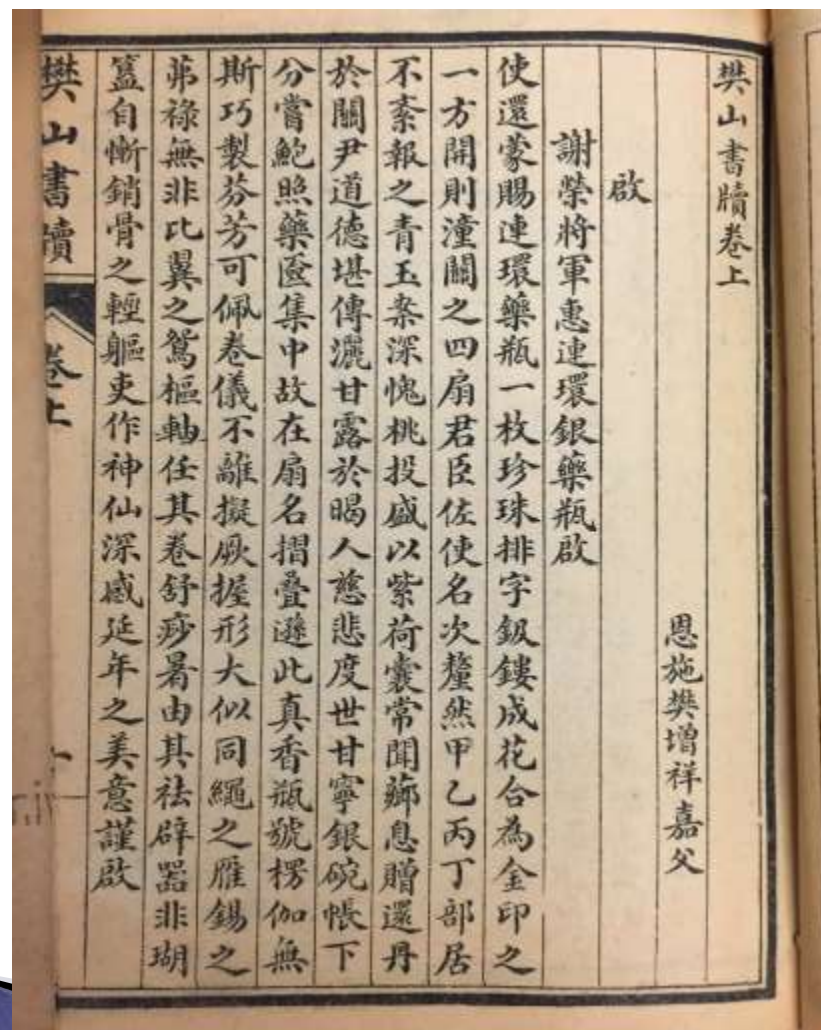 樊山書牘卷上
恩施樊增祥嘉父
啟
謝榮將軍惠連環銀藥瓶啟
使還蒙賜連環藥瓶一枚珍珠排字釵鏤成花合為金印之
一方開則潼關之四扇君臣佐使名次釐然甲乙丙丁部居
不紊報之青玉案深愧桃投盛以紫荷囊常聞薌息贈還丹
於關尹道德堪傳灑甘露於暍人慈悲度世甘寧銀碗帳下
分嘗鮑照藥匳集中故在扇名摺疊遜此真香瓶號楞伽無
斯巧製芬芳可佩卷儀不離擬厥握形大似同繩之雁錫之
茀祿無非比翼之鴛樞軸任其卷舒痧暑由其祛辟器非瑚
簋自慚銷骨之輕軀吏作神仙深感延年之美意謹啟
樊山書牘
卷上